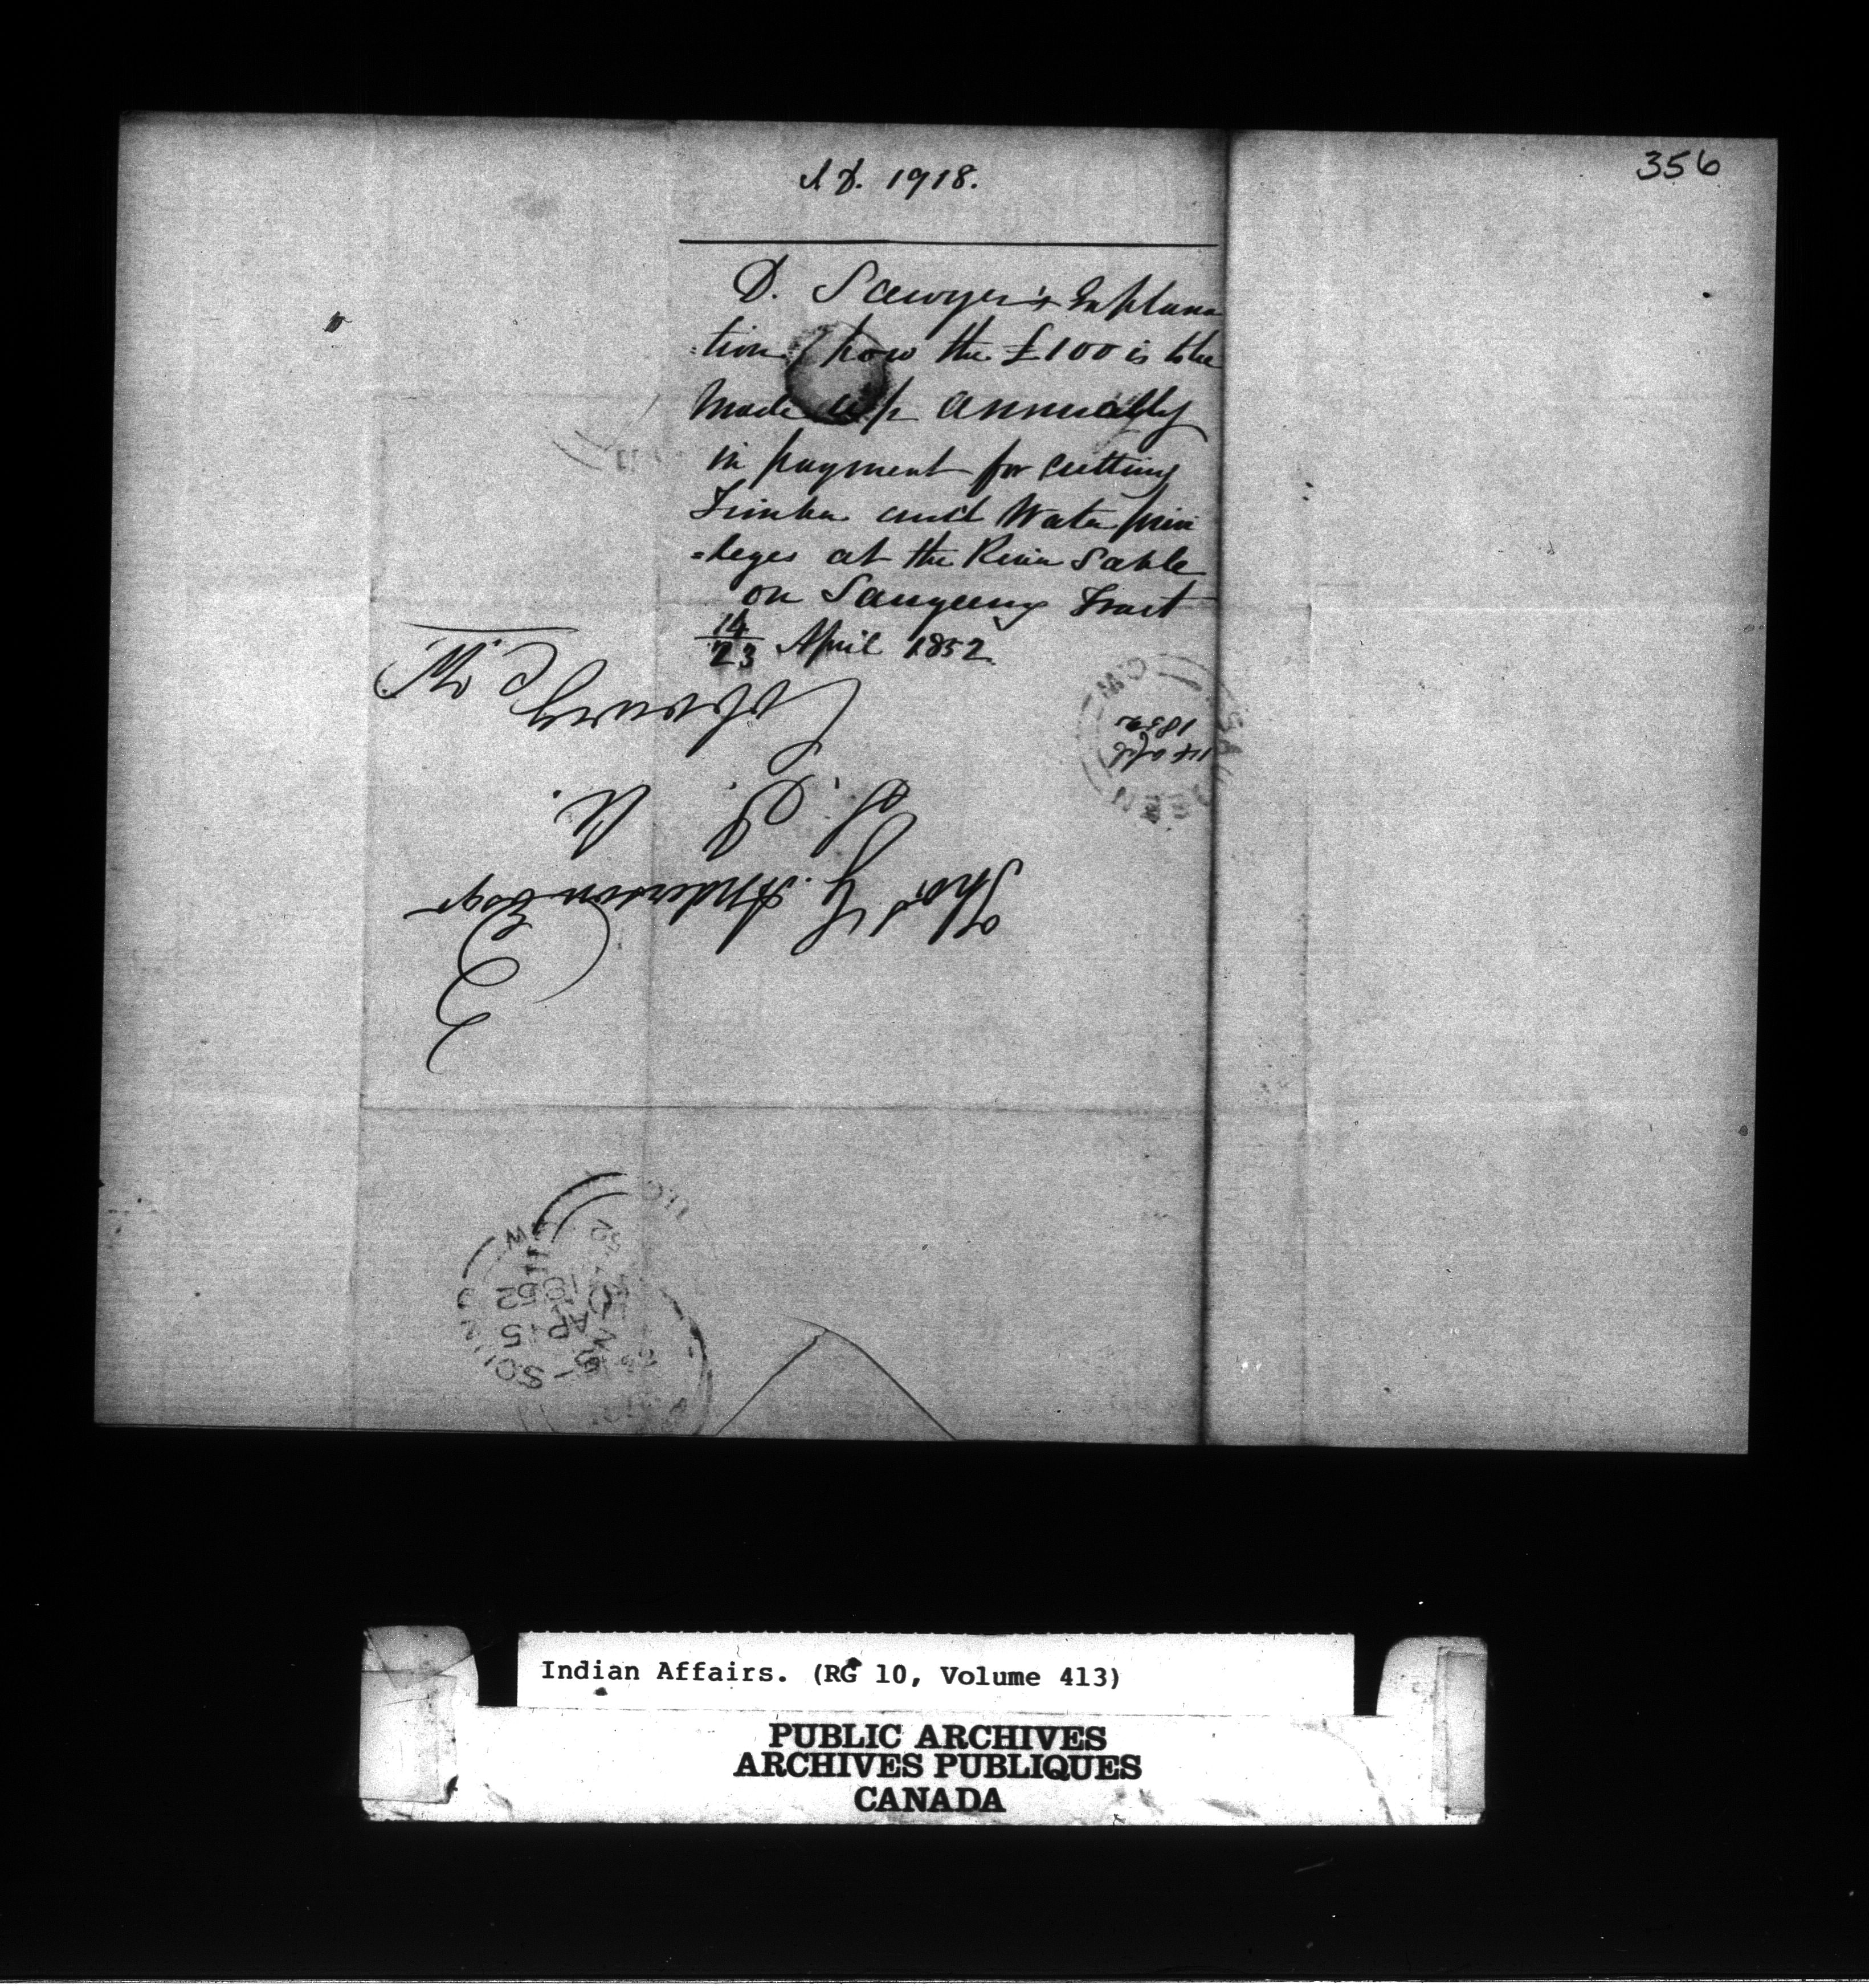 356
A D. 1918.
D. Sawyer's Explana
=tion how the £100 is to be
Made up annually
in payment for cutting
Timber and Water privi
=leges at the River Sable
on Saugeeng Tract
14/23 April 1852.
Thos. G. Anderson Esqr
S. I. A.
Cobourg C. W.
SAUGEEN C.W
14 Apl
1852
AP 15
1852
Indian Affairs. (RG 10, Volume 413)
PUBLIC ARCHIVES
ARCHIVES PUBLIQUES
CANADA